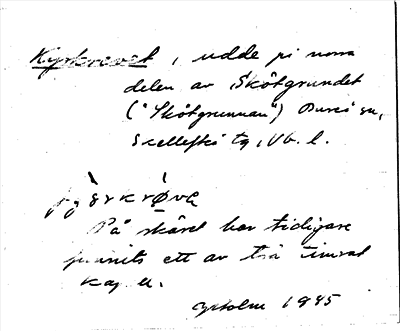 Kyrkrevet, udde på norra
delen av Skötgrundet
("Skötgrunnan") Bureå sn,
Skellefteå tg, Vb. l.
På skäret har tidigare
funnits ett av trä timrat
kapell.
1945